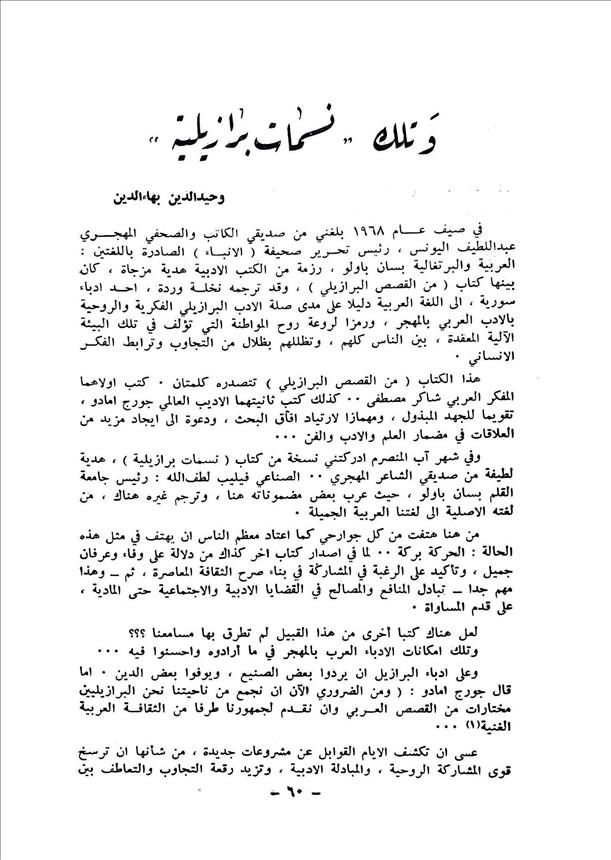 وَتلك « نسمات برازيلية »
وحيدالدين بهاءالدين
في صيف عــام ١٩٦٨ بلغني من صديقي الكاتب والصحفي المهجــري
عبداللطيف اليونس ، رئيس تحرير صحيفة ( الانبـاء ) الصادرة باللغتين :
العربية والبرتغالية بسان باولو ، رزمة من الكتب الادبية هدية مزجاة ، كان
بينها كتاب ( من القصص البرازيلي ) ، وقد ترجمه نخلـة وردة ، احـد ادباء
سورية ، الى اللغة العربية دليلا على مدى صلة الادب البرازيلي الفكرية والروحية
بالادب العربي بالمهجر ، ورمزا لروعة روح المواطنة التي تؤلف في تلك البيئة
الآلية المعقدة ، بين الناس كلهم ، وتظللهم بظلال من التجاوب وترابط الفكـر
الانساني ٠
هذا الكتاب ( من القصص البرازيلي ) تتصدره كلمتان ٠ كتب اولاهما
المفكر العربي شاكر مصطفى ٠٠ كذلك كتب ثانيتهما الاديب العالمي جورج امادو ،
تقويما للجهد المبذول ، ومهمازا لارتياد افآق البحث ، ودعوة الى ايجاد مزيد من
العلاقات في مضمار العلم والادب والفن ٠٠٠
وفي شهر آب المنصرم ادركتني نسخة من كتاب ( نسمات برازيلية ) ، هدية
لطيفة من صديقي الشاعر المهجري ٠٠ الصناعي فيليب لطف‌الله : رئيس جامعة
القلم بسان باولو ، حيث عرب بعض مضموناته هنا ، وترجم غيره هناك ، من
لغته الاصلية الى لغتنا العربية الجميلة ٠
من هنا هتفت من كل جوارحي كما اعتاد معظم الناس ان يهتف في مثل هذه
الحالة : الحركة بركة ٠٠ لما في اصدار كتاب اخر كذاك من دلالة على وفاء وعرفان
جميل ، وتأكيد على الرغبة في المشاركة في بناء صرح الثقافة المعاصرة ، ثم ــ وهذا
مهم جدا ــ تبادل المنافع والمصالح في القضايا الادبية والاجتماعية حتى المادية ،
على قدم المساواة ٠
لعل هناك كتبا أخرى من هذا القبيل لم تطرق بها مسامعنا ؟؟؟
وتلك امكانات الادباء العرب بالمهجر في ما أرادوه واحسنوا فيه ٠٠٠
وعلى ادباء البرازيل ان يردوا بعض الصنيع ، ويوفوا بعض الدين ٠ اما
قال جورج امادو : ( ومن الضروري الآن ان نجمع من ناحيتنا نحن البرازيليين
مختارات من القصص العــربي وان نقـدم لجمهورنا طرفا من الثقافـة العربية
الغنية(١) ٠٠٠
عسى ان تكشف الايام القوابل عن مشروعات جديدة ، من شأنها ان ترسخ
قوى المشاركة الروحية ، والمبادلة الادبية ، وتزيد رقعة التجاوب والتعاطف بين
ــ ٦٠ ــ